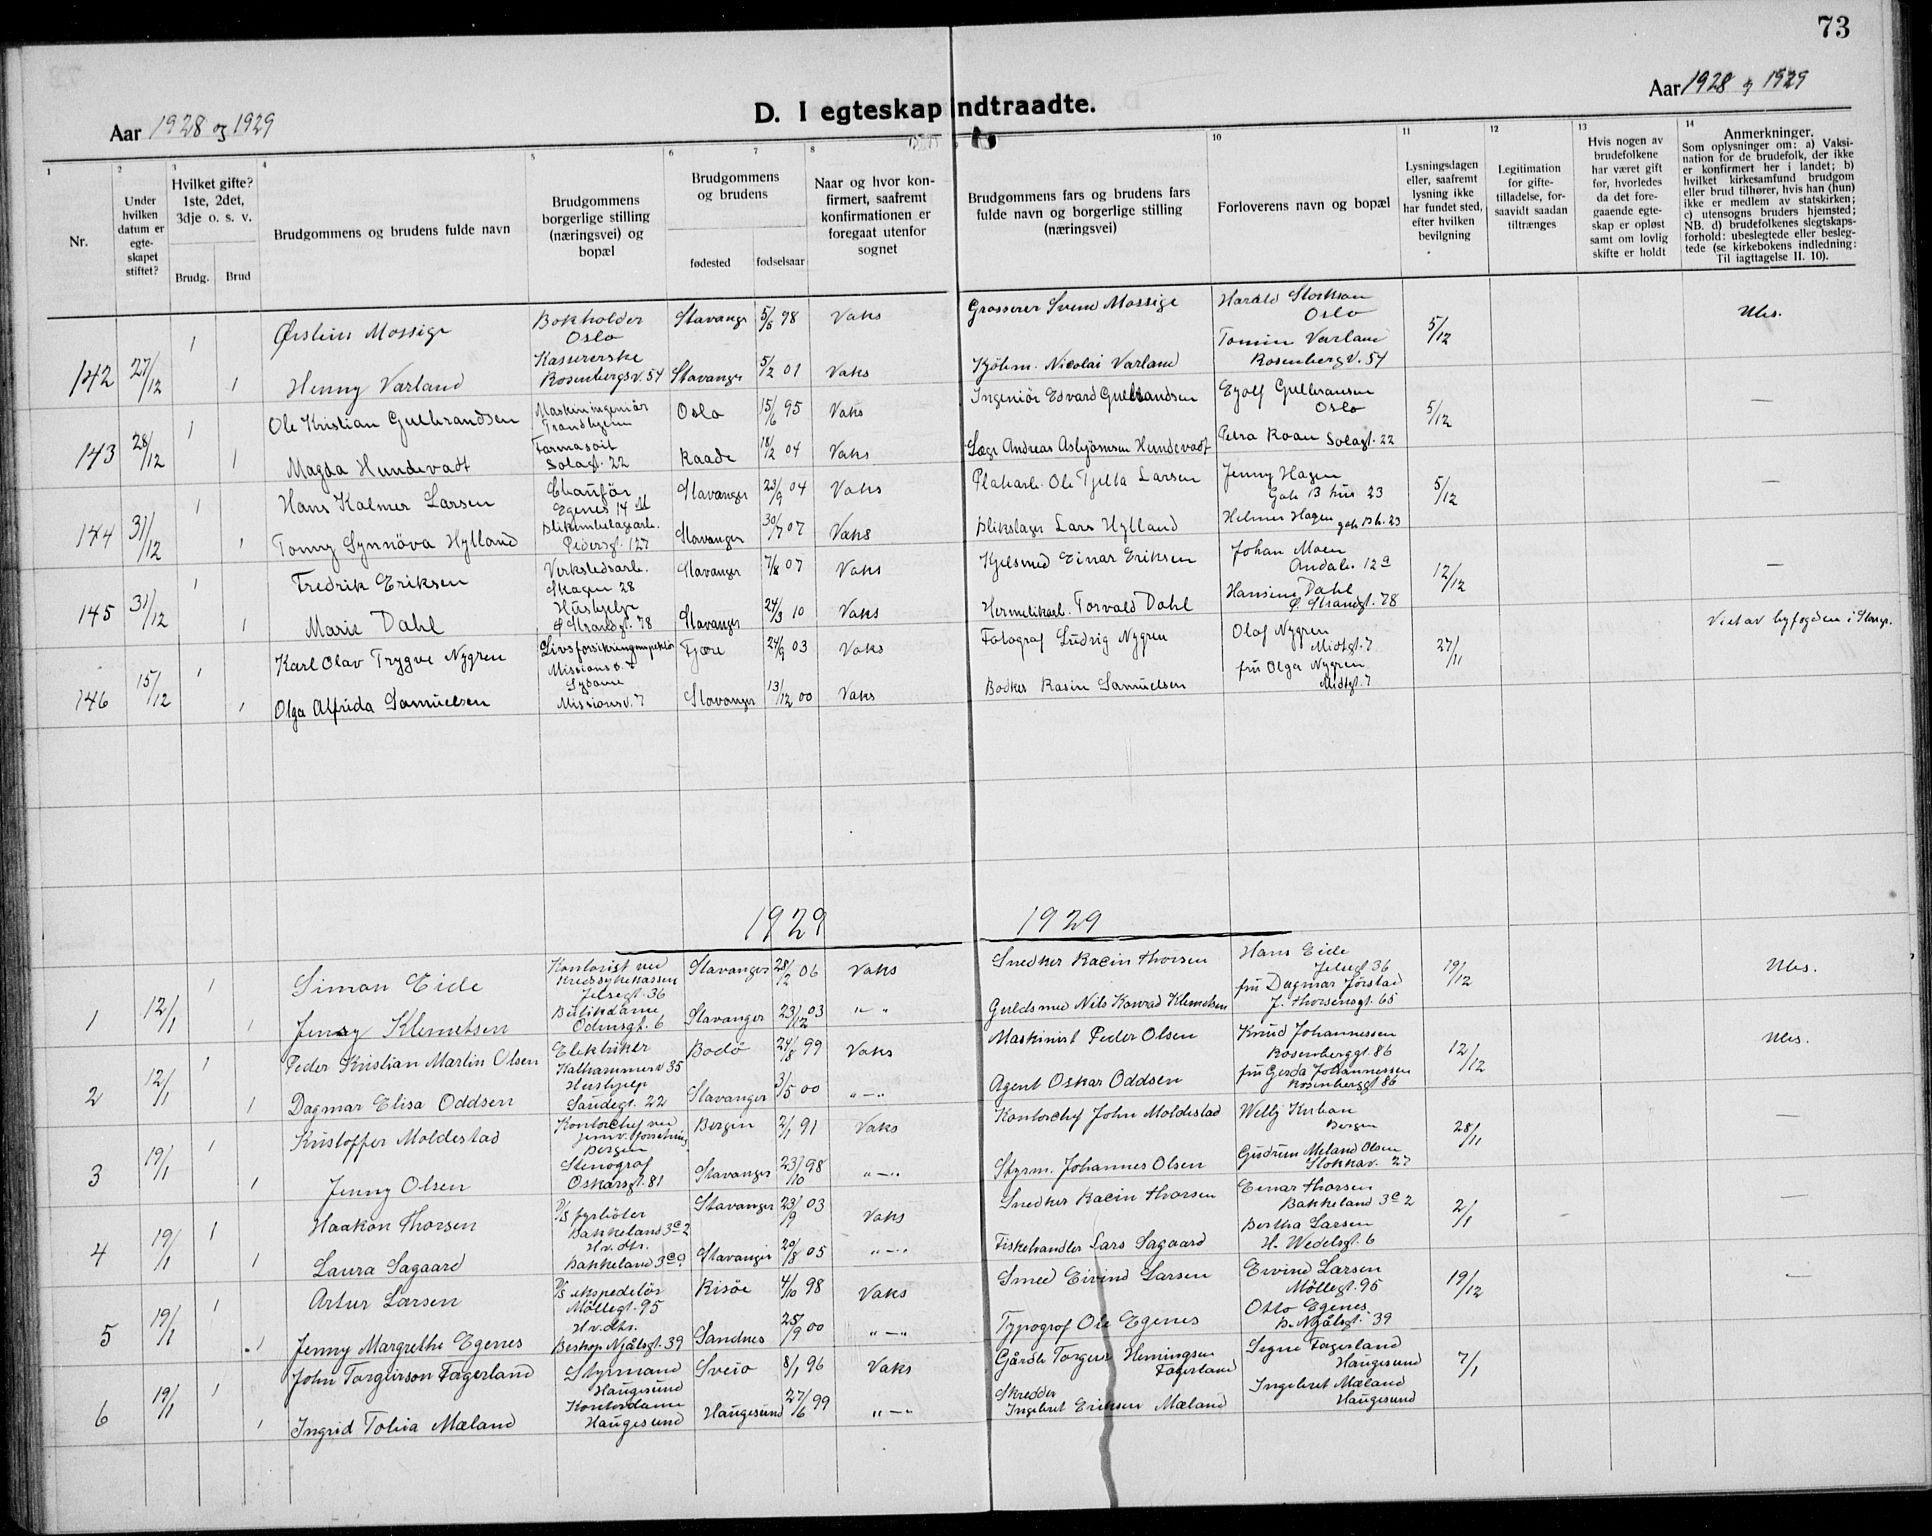 73
Aar 1928 og 1929
D. I egteskap indtraadte.
Aar 1928 og 1929
1 2 3 4 5 6 7 8 10 11 12 13 14
Nr.
Under hvilken datum er egteskapet stiftet?
Hvilket gifte? 1ste, 2det, 3dje o. s. v.
Brudg. Brud
Brudgommens og brudens fulde navn
Brudgommens borgerlige stilling (næringsvei) og bopæl
Brudgommens og brudens
fødested fødselsaar
Naar og hvor konfirmert, saafremt konfirmationen er foregaat utenfor sognet
Brudgommens fars og brudens fars fulde navn og borgerlige stilling (næringsvei)
Forloverens navn og bopæl
Lysningsdagen eller, saafremt lysning ikke har fundet sted, efter hvilken bevilgning
Legitimation for giftetilladelse, forsaavidt saadan tiltrænges
Hvis nogen av brudefolkene har været gift før, hvorledes da det foregaaende egteskap er opløst samt om lovlig skifte er holdt
Anmerkninger.
Som oplysninger om: a) Vaksination for de brudefolk, der ikke er konfirmert her i landet; b) hvilket kirkesamfund brudgom eller brud tilhører, hvis han (hun) ikke er medlem av statskirken; c) utensogns bruders hjemsted; NB. d) brudefolkenes slegtskapsforhold: ubeslegtede eller beslegtede (se kirkebokens indledning: Til iagttagelse II. 10).
142 27/12 1 Øistein Mossige Bokholder Oslo Stavanger 5/5 98 Vaks Grosserer Svend Mossige Harald Oslo 5/12 Ubs.
1 Henny Varland Kassererske Rosenbergsv. 54 Stavanger 5/2 01 Vaks Kjöbm. Nicolai Varland Varland Rosenbergv. 54
143 28/12 1 Ole Kristian Gulbrandsen Maskiningeniör Trondhjem Oslo 15/6 95 Vaks Ingeniör Edvard Gulbrandsen Eyolf Gulbransen Oslo 5/12 —
1 Magda Hundevadt Solagt. 22 Raade 18/2 04 Vaks Læge Andreas Asbjörnsen Hundevadt Petra Roan Solagt. 22
144 31/12 1 Hans Kalmer Larsen Chauför Egenes 14 Stavanger 23/9 04 Vaks Plakarb. Ole Tjelta Larsen Jenny Hagen Gate B hus 23 5/12 —
1 Tomy Synnöva Hylland Blikembalagearb. Pedersgt. 127 Stavanger 30/7 07 Vaks Blikslager Lars Hylland Helmer Hagen gate B h. 23
145 31/12 1 Fredrik Eriksen Verkstedsarb. Skagen 28 Stavanger 7/8 07 Vaks Kjelsmed Einar Eriksen Johan Moen 12a 12/12 —
1 Marie Dahl Hushjelp Ø Strandgt. 78 Stavanger 24/3 10 Vaks Hermetikarb. Torvald Dahl Hansine Dahl Ø. Strandgt. 78
146 15/12 1 Karl Olav Trygve Nygren Livsforsikringsinspektör Missionsv. 7 Fjære 24/9 03 Vaks Fotograf Ludvig Nygren Olaf Nygren Midtgt. 7 27/11 Viet av byfogden i Stavgr.
1 Olga Alfrida Samuelsen Sydame Missionsv. 7 Stavanger 13/12 00 Vaks Bödker Rasin Samuelsen fru Olga Nygren Midtgt. 7
1929 1929
1 12/1 1 Simon Eide Kontorist ved Kredssykekassen Jelsegt. 36 Stavanger 28/2 06 Vaks Snedker Racin Thorsen Hans Eide Jelsegt 36 19/12 Ubs.
1 Jenny Klemetsen Butikdame Odinsgt. 6 Stavanger 23/12 03 " " Guldsmed Nils Konrad Klemetsen fru Dagmar Jörstad J. Thorsensgt. 65
2 12/1 1 Peder Kristian Martin Olsen Elektriker Kalhammerv 35 Bodö 24/8 99 Vaks Maskinist Peder Olsen Knud Johannessen Rosenberggt. 86 12/12 Ubs.
1 Dagmar Elisa Oddsen Hushjelp Saudegt. 22 Stavanger 3/5 00 " — " Agent Oskar Oddsen fru Gerda Johannessen Rosenberggt 86
3 19/1 1 Kristoffer Moldestad Kontorchef ved Bergen Bergen 2/1 91 Vaks Kontorchef John Moldestad Welly Bergen 28/11 —
1 Jenny Olsen Stenograf Oskarsgt. 81 Stavanger 23/10 98 " — " Styrm. Johannes Olsen Gudrun Meland Olsen Stokkav. 27
4 19/1 1 Haakon Thorsen D/S fyrböter Bakkeland 3c 2 Stavanger 23/9 03 Vaks Snedker Racin Thorsen Einar Thorsen Bakkeland 3c 2 2/1 —
1 Laura Sagaard H. v. dtr. Bakkeland 3c 9 Stavanger 20/8 05 " — " Fiskehandler Lars Sagaard Bertha Larsen H. Wedelsgt. 6
5 19/1 1 Artur Larsen D/S ekspeditör Möllegt. 95 Risöe 4/10 98 Vaks Smed Eivind Larsen Eivind Larsen Möllegt. 95 19/12 —
1 Jenny Margrethe Egenes H. v. dtr. Beskop Njålsgt. 39 Sandnes 25/9 00 " — " Typograf Ole Egenes Otto Egenes B. Njålsgt. 39
6 19/1 1 John Torgeirson Fagerland Styrmand Haugesund Sveio 8/1 96 Vaks Gårdb. Torgeir Hemingsen Fagerland Signe Fagerland Haugesund 7/1
1 Ingrid Tolvia Mæland Kontordame Haugesund Haugesund 27/6 99 " — " Skredder Ingebret Eriksen Mæland Ingebret Mæland Haugesund